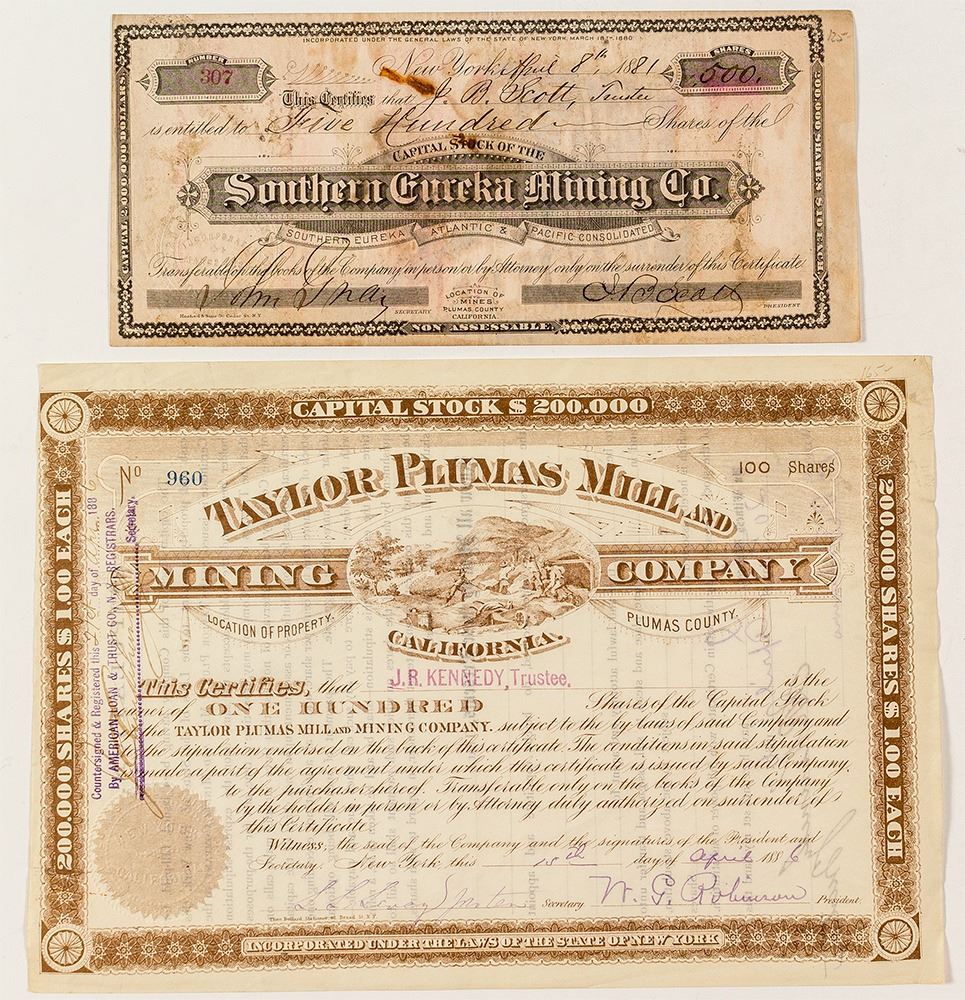 125-
INCORPORATED UNDER THE GENERAL LAWS OF THE STATE OF NEW YORK, MARCH 18TH 1880
NUMBER
307
New York April 8th, 1881
SHARES
500.
This Certifies that J. B. Scott, Trustee
is entitled to Five Hundred Shares of the
CAPITAL STOCK OF THE
Southern Eureka Mining Co.
SOUTHERN EUREKA ATLANTIC & PACIFIC CONSOLIDATED
Transferable on the books of the Company in person or by Attorney only on the surrender of this Certificate
John Shay
SECRETARY
LOCATION OF
MINES
PLUMAS COUNTY
CALIFORNIA.
J B Scott
PRESIDENT
NON ASSESSABLE.
CAPITAL 2,000,000 DOLLARS
200,000 SHARES $10 EACH
CAPITAL STOCK $200.000
No 960
100 Shares
TAYLOR PLUMAS MILL AND
MINING COMPANY
LOCATION OF PROPERTY.
PLUMAS COUNTY.
CALIFORNIA.
This Certifies, that J.R. KENNEDY, Trustee. is the
owner of ONE HUNDRED Shares of the Capital Stock
of the TAYLOR PLUMAS MILL AND MINING COMPANY. subject to the by laws of said Company and
the stipulation endorsed on the back of this certificate. The conditions in said stipulation
is made a part of the agreement under which this certificate is issued by said Company.
to the purchaser hereof. Transferable only on the books of the Company
by the holder in person or by Attorney duly authorized on surrender of
this Certificate
Witness, the seal of the Company and the signatures of the President and
Secretary. New York, this 15th day of April 1886
Secretary
W. G. Robinson
President
INCORPORATED UNDER THE LAWS OF THE STATE OF NEW YORK
200.000 SHARES $100 EACH
200.000 SHARES $100 EACH
Countersigned & Registered this day of 188
By AMERICAN LOAN & TRUST CO. N.Y. REGISTRARS.
Secretary.